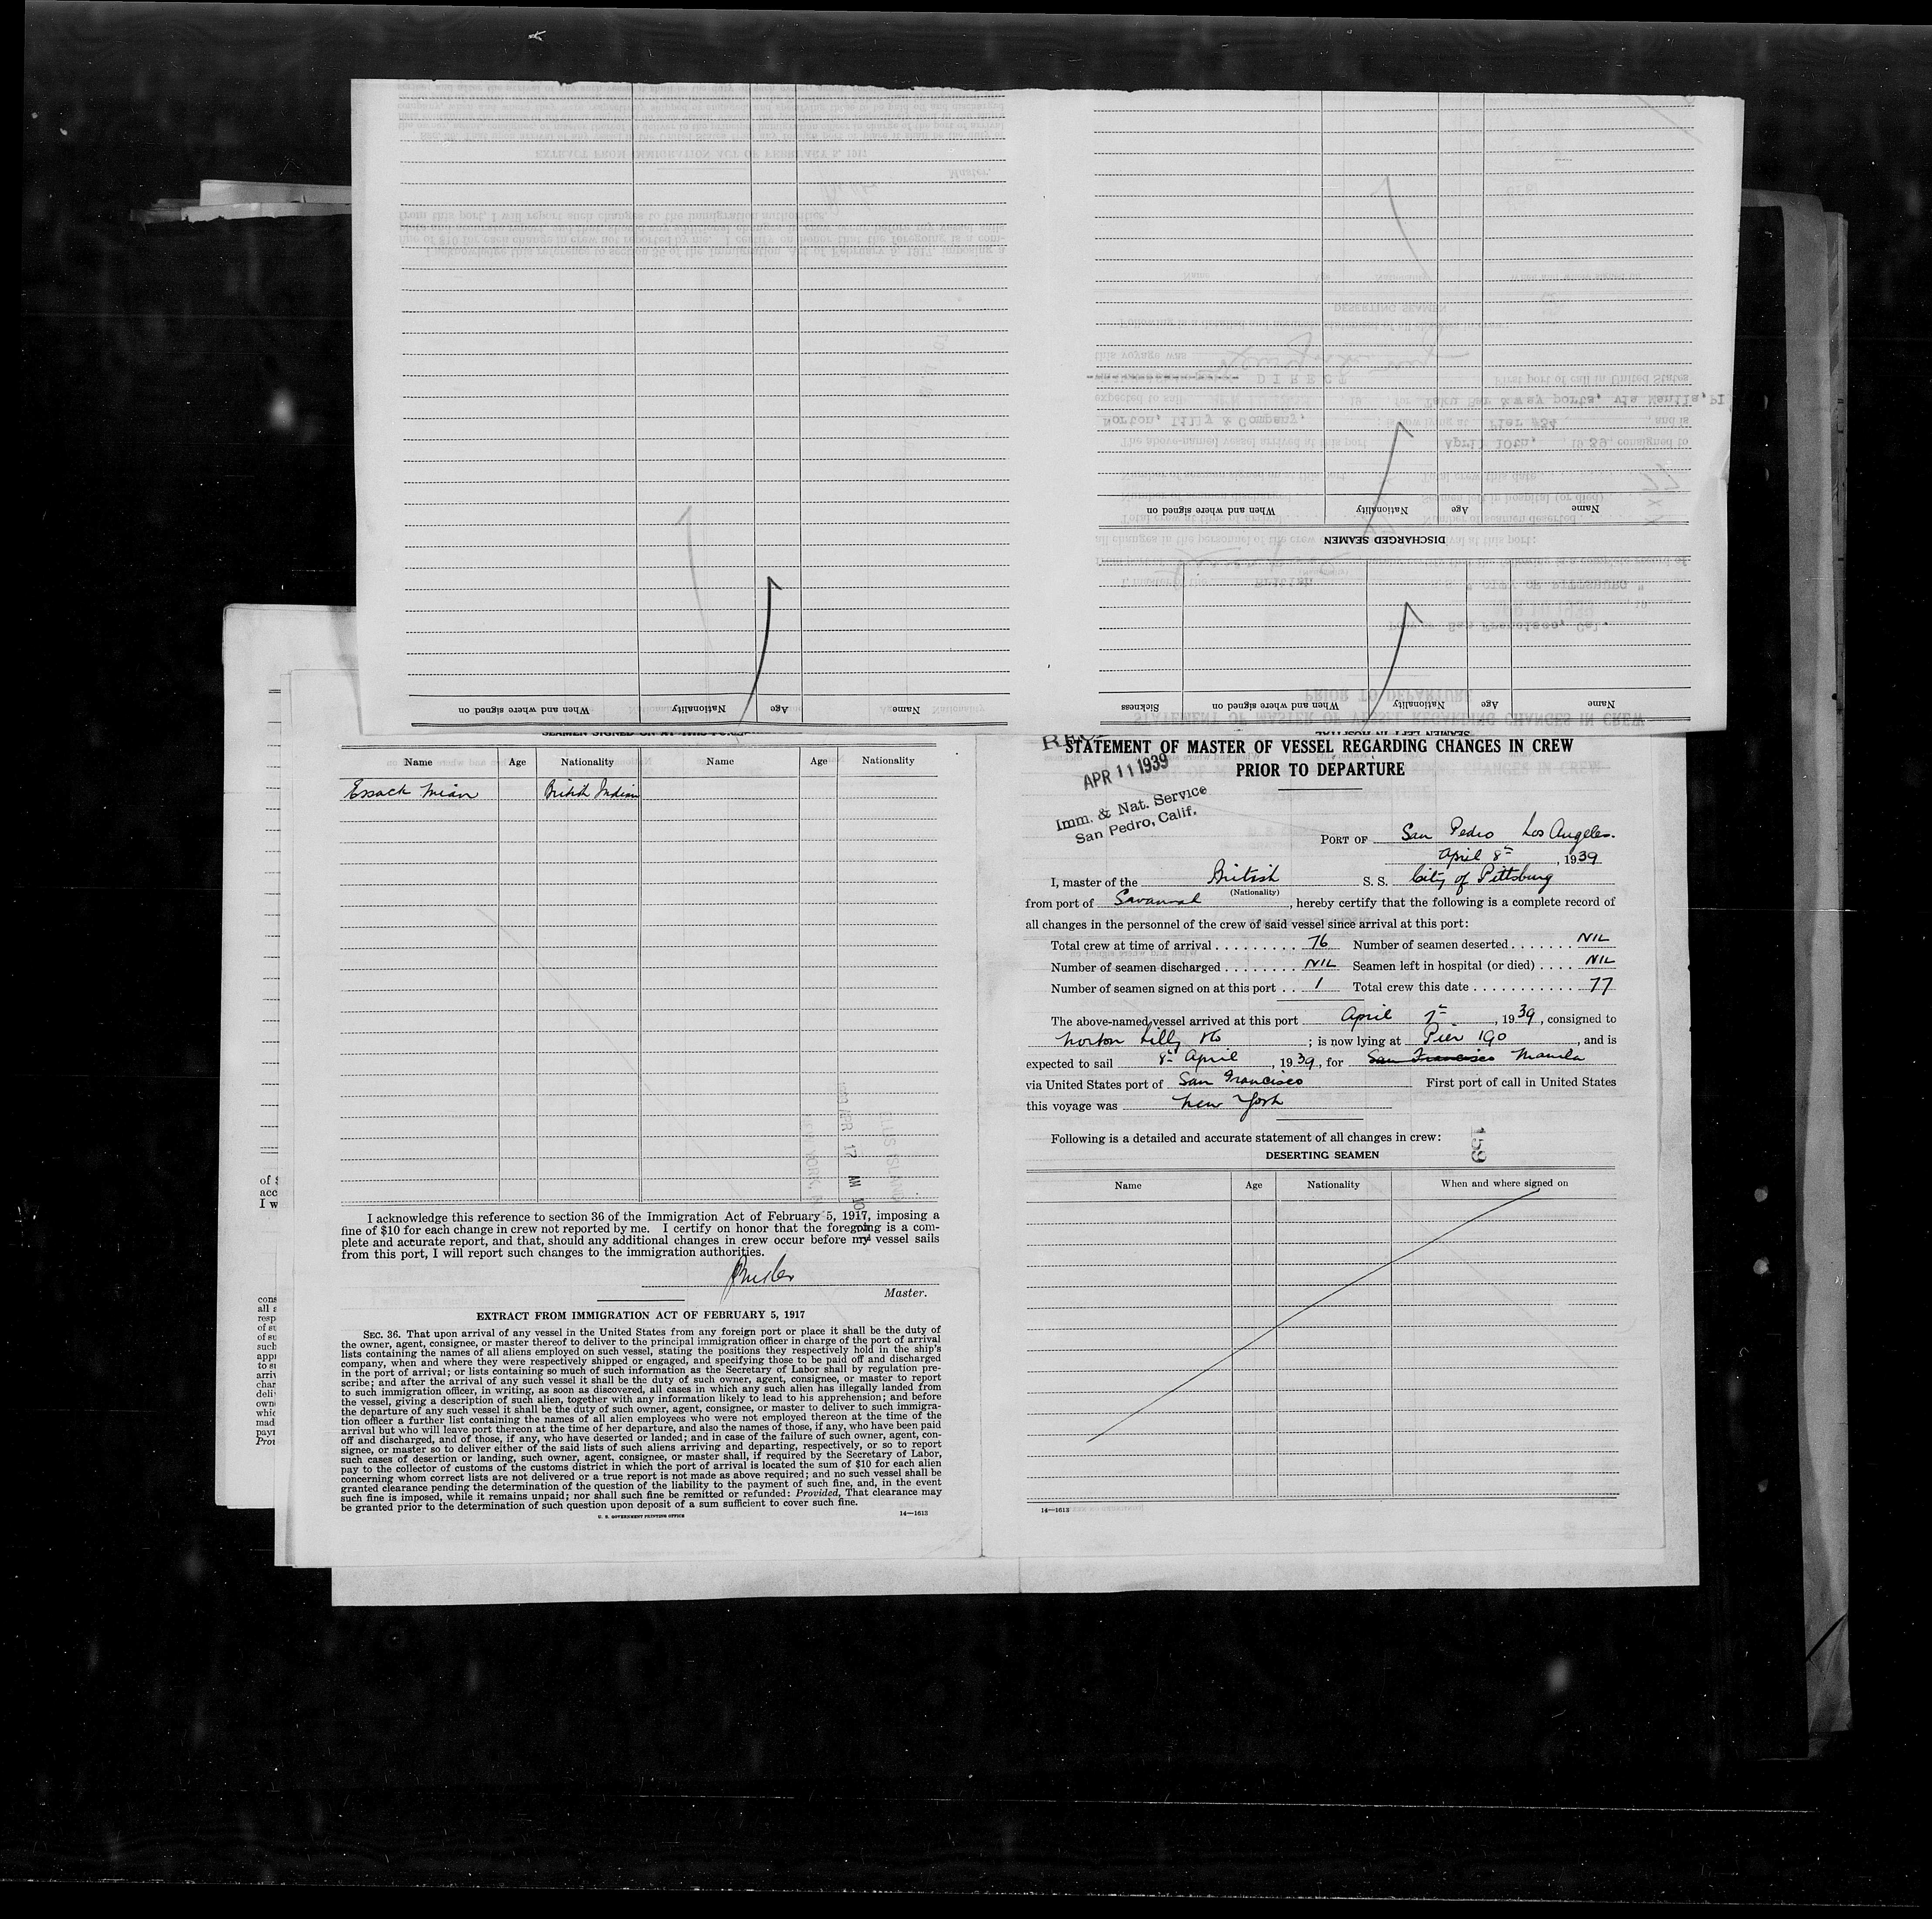 When and where signed on Nationality Age Name
When and where signed on Nationality Age Name
DISCHARGED SEAMEN
Sickness When and where signed on Nationality Age Name
SEAMEN LEFT IN HOSPITAL
Name Age Nationality Name Age Nationality
Essack Mian British Indian
I acknowledge this reference to section 36 of the Immigration Act of February 5, 1917, imposing a
fine of $10 for each change in crew not reported by me. I certify on honor that the foregoing is a com-
plete and accurate report, and that, should any additional changes in crew occur before my vessel sails
from this port, I will report such changes to the immigration authorities.
Master.
EXTRACT FROM IMMIGRATION ACT OF FEBRUARY 5, 1917
SEC. 36. That upon arrival of any vessel in the United States from any foreign port or place it shall be the duty of
the owner, agent, consignee, or master thereof to deliver to the principal immigration officer in charge of the port of arrival
lists containing the names of all aliens employed on such vessel, stating the positions they respectively hold in the ship's
company, when and where they were respectively shipped or engaged, and specifying those to be paid off and discharged
in the port of arrival; or lists containing so much of such information as the Secretary of Labor shall by regulation pre-
scribe; and after the arrival of any such vessel it shall be the duty of such owner, agent, consignee, or master to report
to such immigration officer, in writing, as soon as discovered, all cases in which any such alien has illegally landed from
the vessel, giving a description of such alien, together with any information likely to lead to his apprehension; and before
the departure of any such vessel it shall be the duty of such owner, agent, consignee, or master to deliver to such immigra-
tion officer a further list containing the names of all alien employees who were not employed thereon at the time of the
arrival but who will leave port thereon at the time of her departure, and also the names of those, if any, who have been paid
off and discharged, and of those, if any, who have deserted or landed; and in case of the failure of such owner, agent, con-
signee, or master so to deliver either of the said lists of such aliens arriving and departing, respectively, or so to report
such cases of desertion or landing, such owner, agent, consignee, or master shall, if required by the Secretary of Labor,
pay to the collector of customs of the customs district in which the port of arrival is located the sum of $10 for each alien
concerning whom correct lists are not delivered or a true report is not made as above required; and no such vessel shall be
granted clearance pending the determination of the question of the liability to the payment of such fine, and, in the event
such fine is imposed, while it remains unpaid; nor shall such fine be remitted or refunded: Provided, That clearance may
be granted prior to the determination of such question upon deposit of a sum sufficient to cover such fine.
U. S. GOVERNMENT PRINTING OFFICE 14—1613
STATEMENT OF MASTER OF VESSEL REGARDING CHANGES IN CREW
PRIOR TO DEPARTURE
APR 11 1939
Imm. & Nat. Service
San Pedro, Calif.
PORT OF San Pedro Los Angeles.
April 8th, 1939
I, master of the British S. S. City of Pittsburg
(Nationality)
from port of Savannah, hereby certify that the following is a complete record of
all changes in the personnel of the crew of said vessel since arrival at this port:
Total crew at time of arrival . . . . . . . . . 76 Number of seamen deserted . . . . . . . NIL
Number of seamen discharged . . . . . . . . NIL Seamen left in hospital (or died) . . . . NIL
Number of seamen signed on at this port . . 1 Total crew this date . . . . . . . . . . . . 77
The above-named vessel arrived at this port April 7th, 1939, consigned to
Norton Lilly & Co ; is now lying at Pier 190, and is
expected to sail 8th April, 1939, for San Francisco Manila
via United States port of San Francisco First port of call in United States
this voyage was New York
Following is a detailed and accurate statement of all changes in crew:
159
DESERTING SEAMEN
Name Age Nationality When and where signed on
14—1613